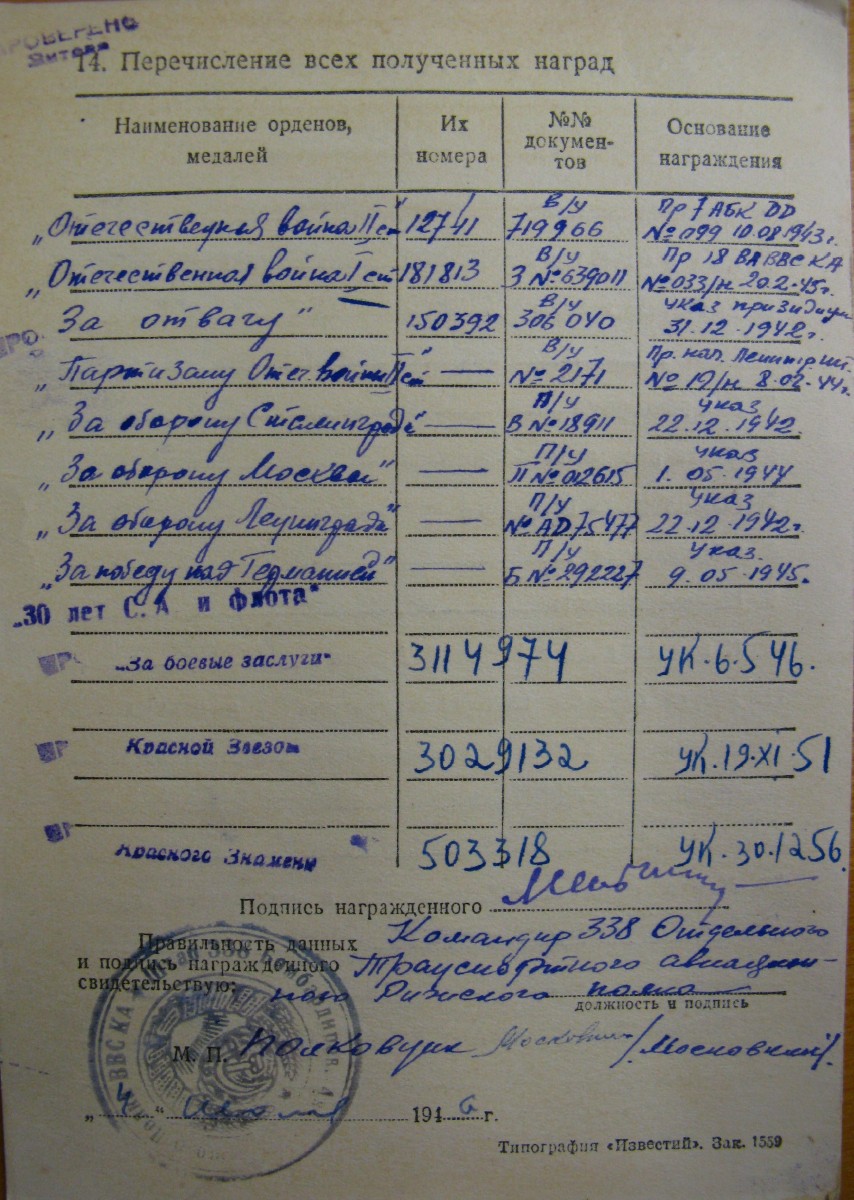 ПРОВЕРЕНО
14. Перечисление всех полученных наград
Наименование орденов, медалей
Их номера
№№ документов
Основание награждения
„Отечественная война II ст" 12741 В/у 719966 Пр 7 АБК DD № 099 10.08.1943г.
„Отечественная война I ст 181813 В/у З № 639011 Пр 18 ВА ВВС КА № 033/н 20.2.45г.
За отвагу" 150392 В/у 306040 Указ 31.12.1942г.
„Партизану Отеч. Войны II ст" — В/у № 2171 № 19/н 8.02.44г.
„За оборону Сталинграда" — П/у В № 18911 Указ 22.12.1942.
„За оборону Москвы" — П/у П № 012615 Указ 1.05.1944
„За оборону Ленинграда" — П/у № АD 75477 Указ 22.12.1942г.
„За победу над Германией" — П/у Б № 292227 Указ 9.05.1945.
„30 лет С.А и флота"
„За боевые заслуги" 3114974 УК.6.546.
Красной Звезды 3029132 УК.19.XI.51
Красного Знамени 503318 УК.30.1256.
Подпись награжденного
Правильность данных Командир 338 Отдельного
и подпись награжденного Транспортного авиацион-
свидетельствую: ного Рижского полка
должность и подпись
М. П. Полковник /Московский/.
„4" 1946 г.
Типография «Известий». Зак. 1559